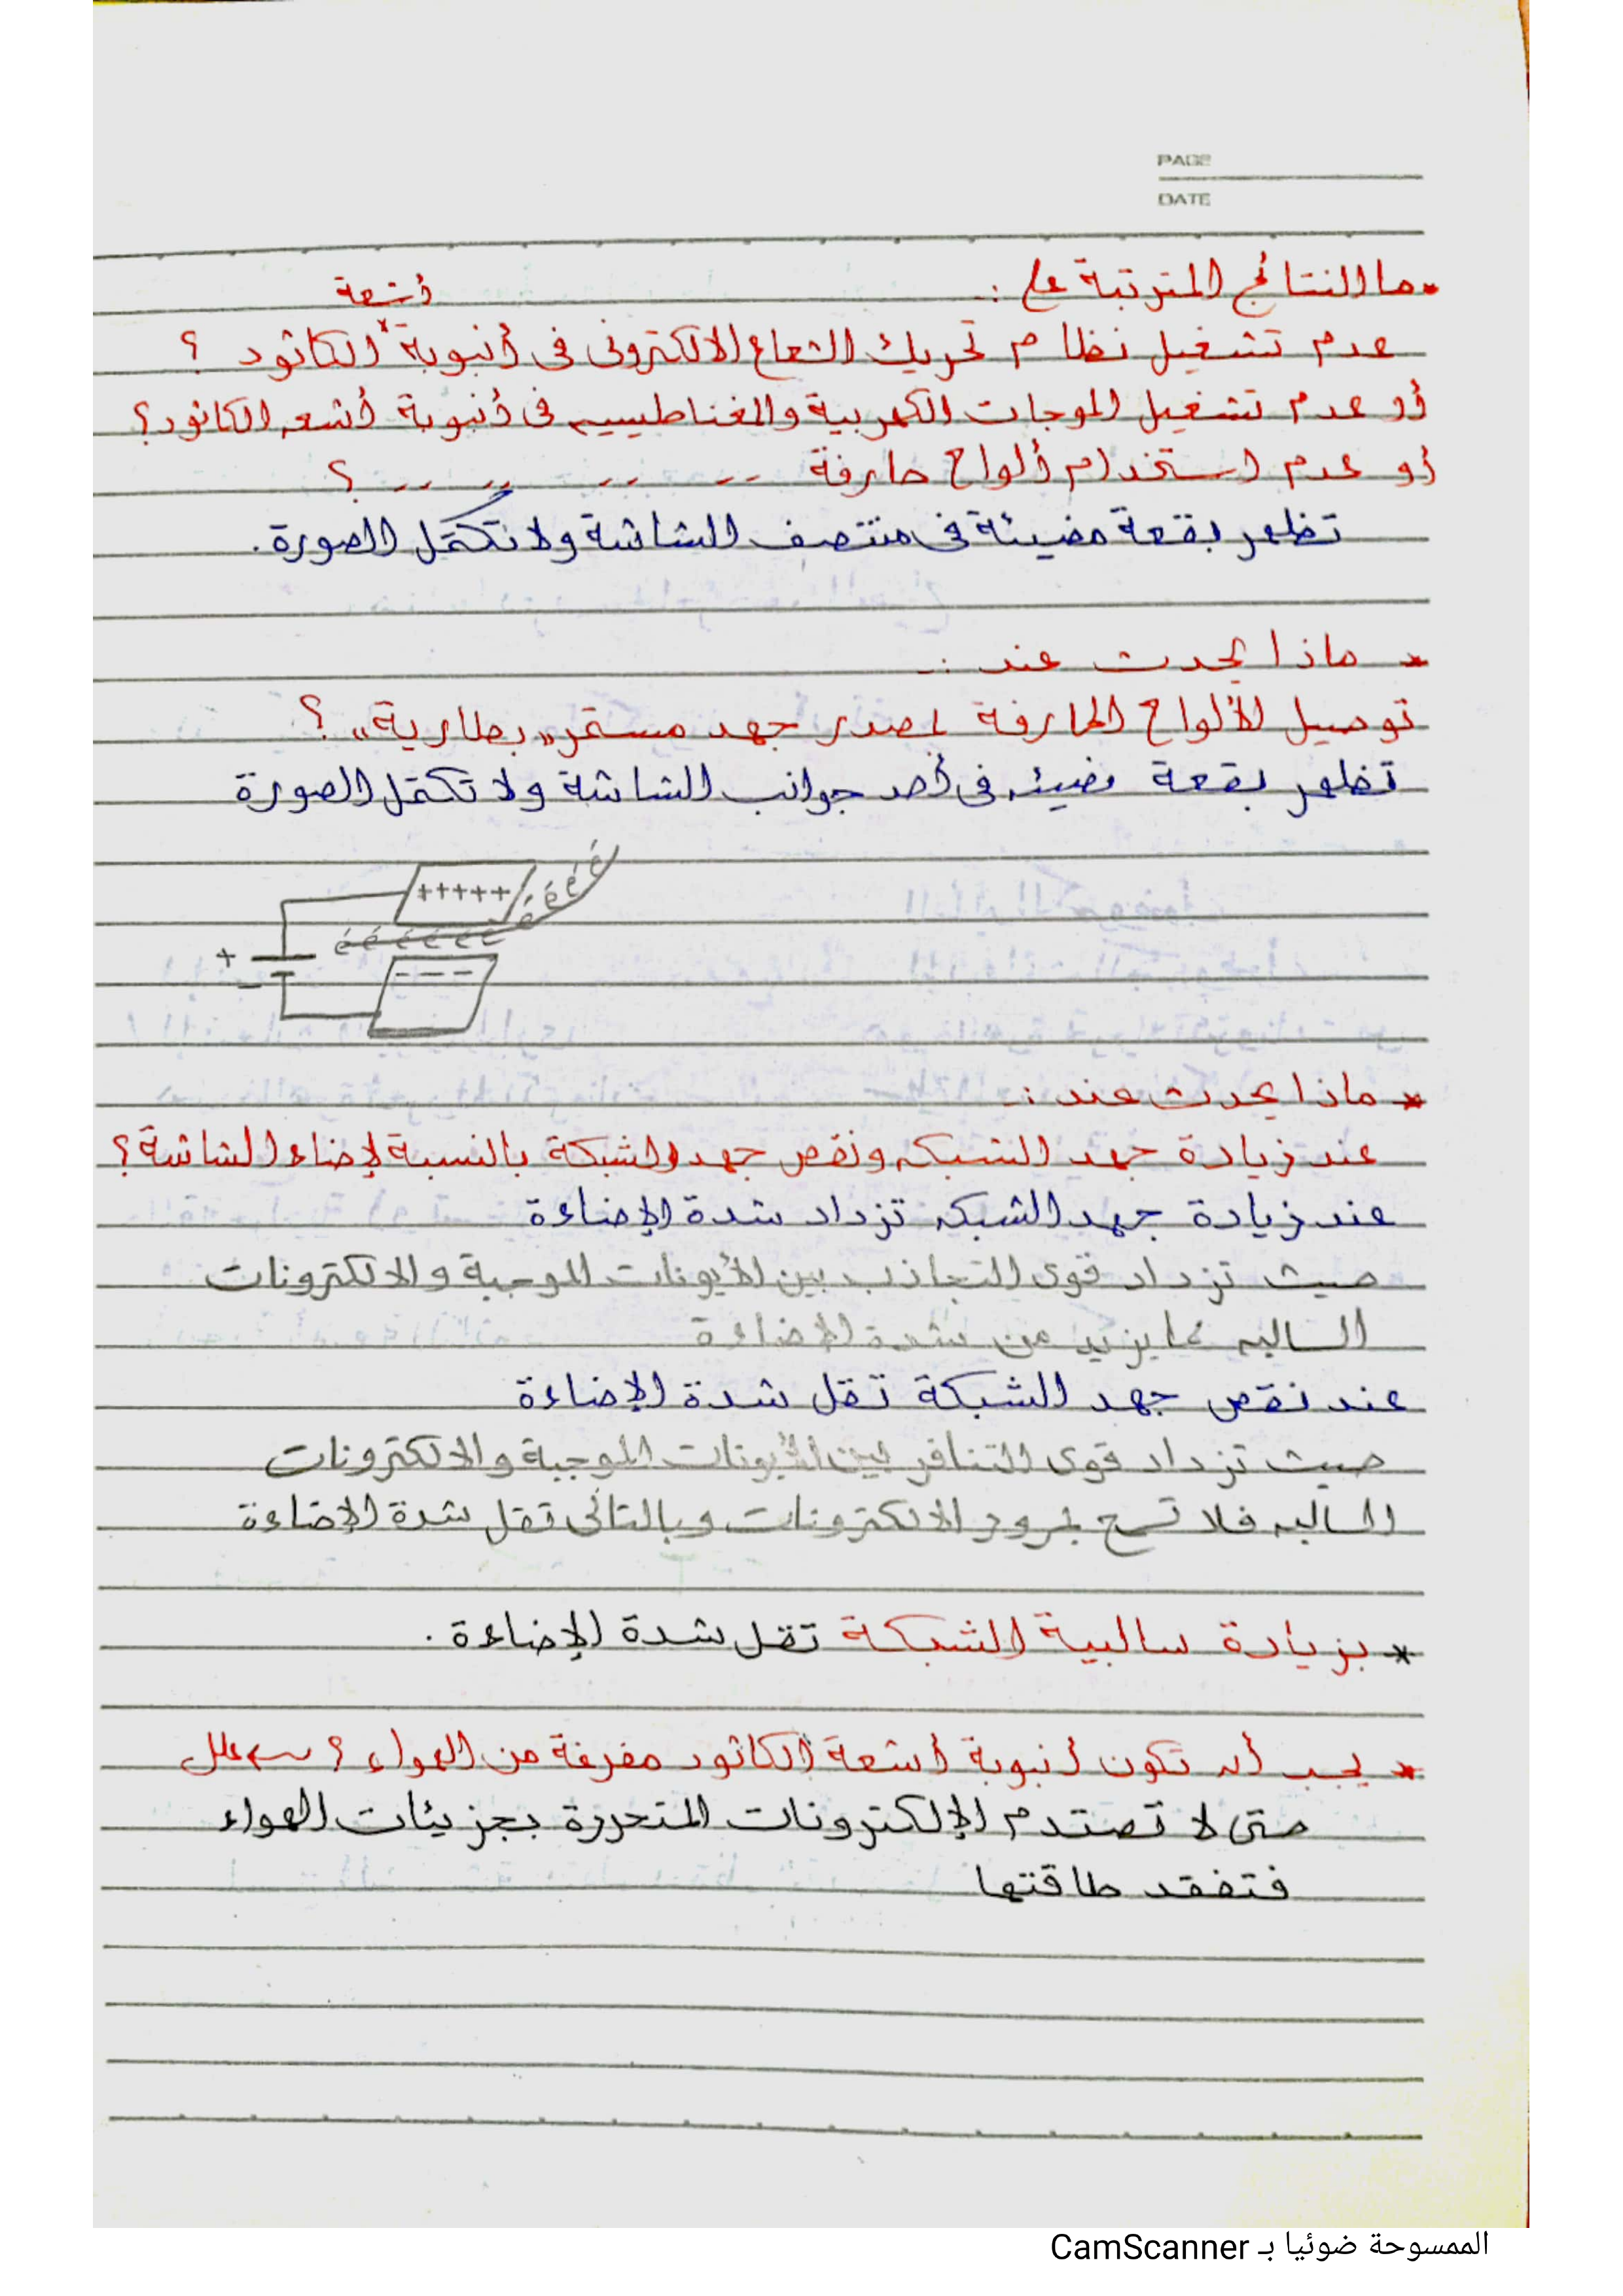 PAGE
DATE
* ما النتائج المترتبة على :-
عدم تشغيل نظام تحريك الشعاع الالكترونى فى أنبوبة أشعة الكاثود ؟
أو عدم تشغيل الموجات الكهربية والمغناطيسيه فى أنبوبة أشعه الكاثود؟
أو عدم استخدام ألواح حارفة -- -- -- -- -- ؟
تظهر بقعة مضيئة فى منتصف الشاشة ولا تكتمل الصورة.
* ماذا يحدث عند :-
توصيل الألواح الحارفة بمصدر جهد مستمر "بطارية" ؟
تظهر بقعة مضيئه فى أحد جوانب الشاشة ولا تكتمل الصورة
+++++
é é é é
é é é é é é é
+
---
-
* ماذا يحدث عند :-
عند زيادة جهد الشبكه ونقص جهد الشبكة بالنسبة لإضاءة الشاشة؟
عند زيادة جهد الشبكه تزداد شدة الإضاءة
حيث تزداد قوى التجاذب بين الأيونات الموجبة والالكترونات
السالبه مما يزيد من شدة الإضاءة
عند نقص جهد الشبكة تقل شدة الإضاءة
حيث تزداد قوى التنافر بين الأيونات الموجبة والالكترونات
السالبه فلا تسمح بمرور الالكترونات وبالتالى تقل شدة الإضاءة
* بزيادة سالبية الشبكة تقل شدة الإضاءة .
* يجب أن تكون أنبوبة أشعة الكاثود مفرغة من الهواء ؟ علل
حتى لا تصتدم الإلكترونات المتحررة بجزيئات الهواء
فتفقد طاقتها
الممسوحة ضوئيا بـ CamScanner